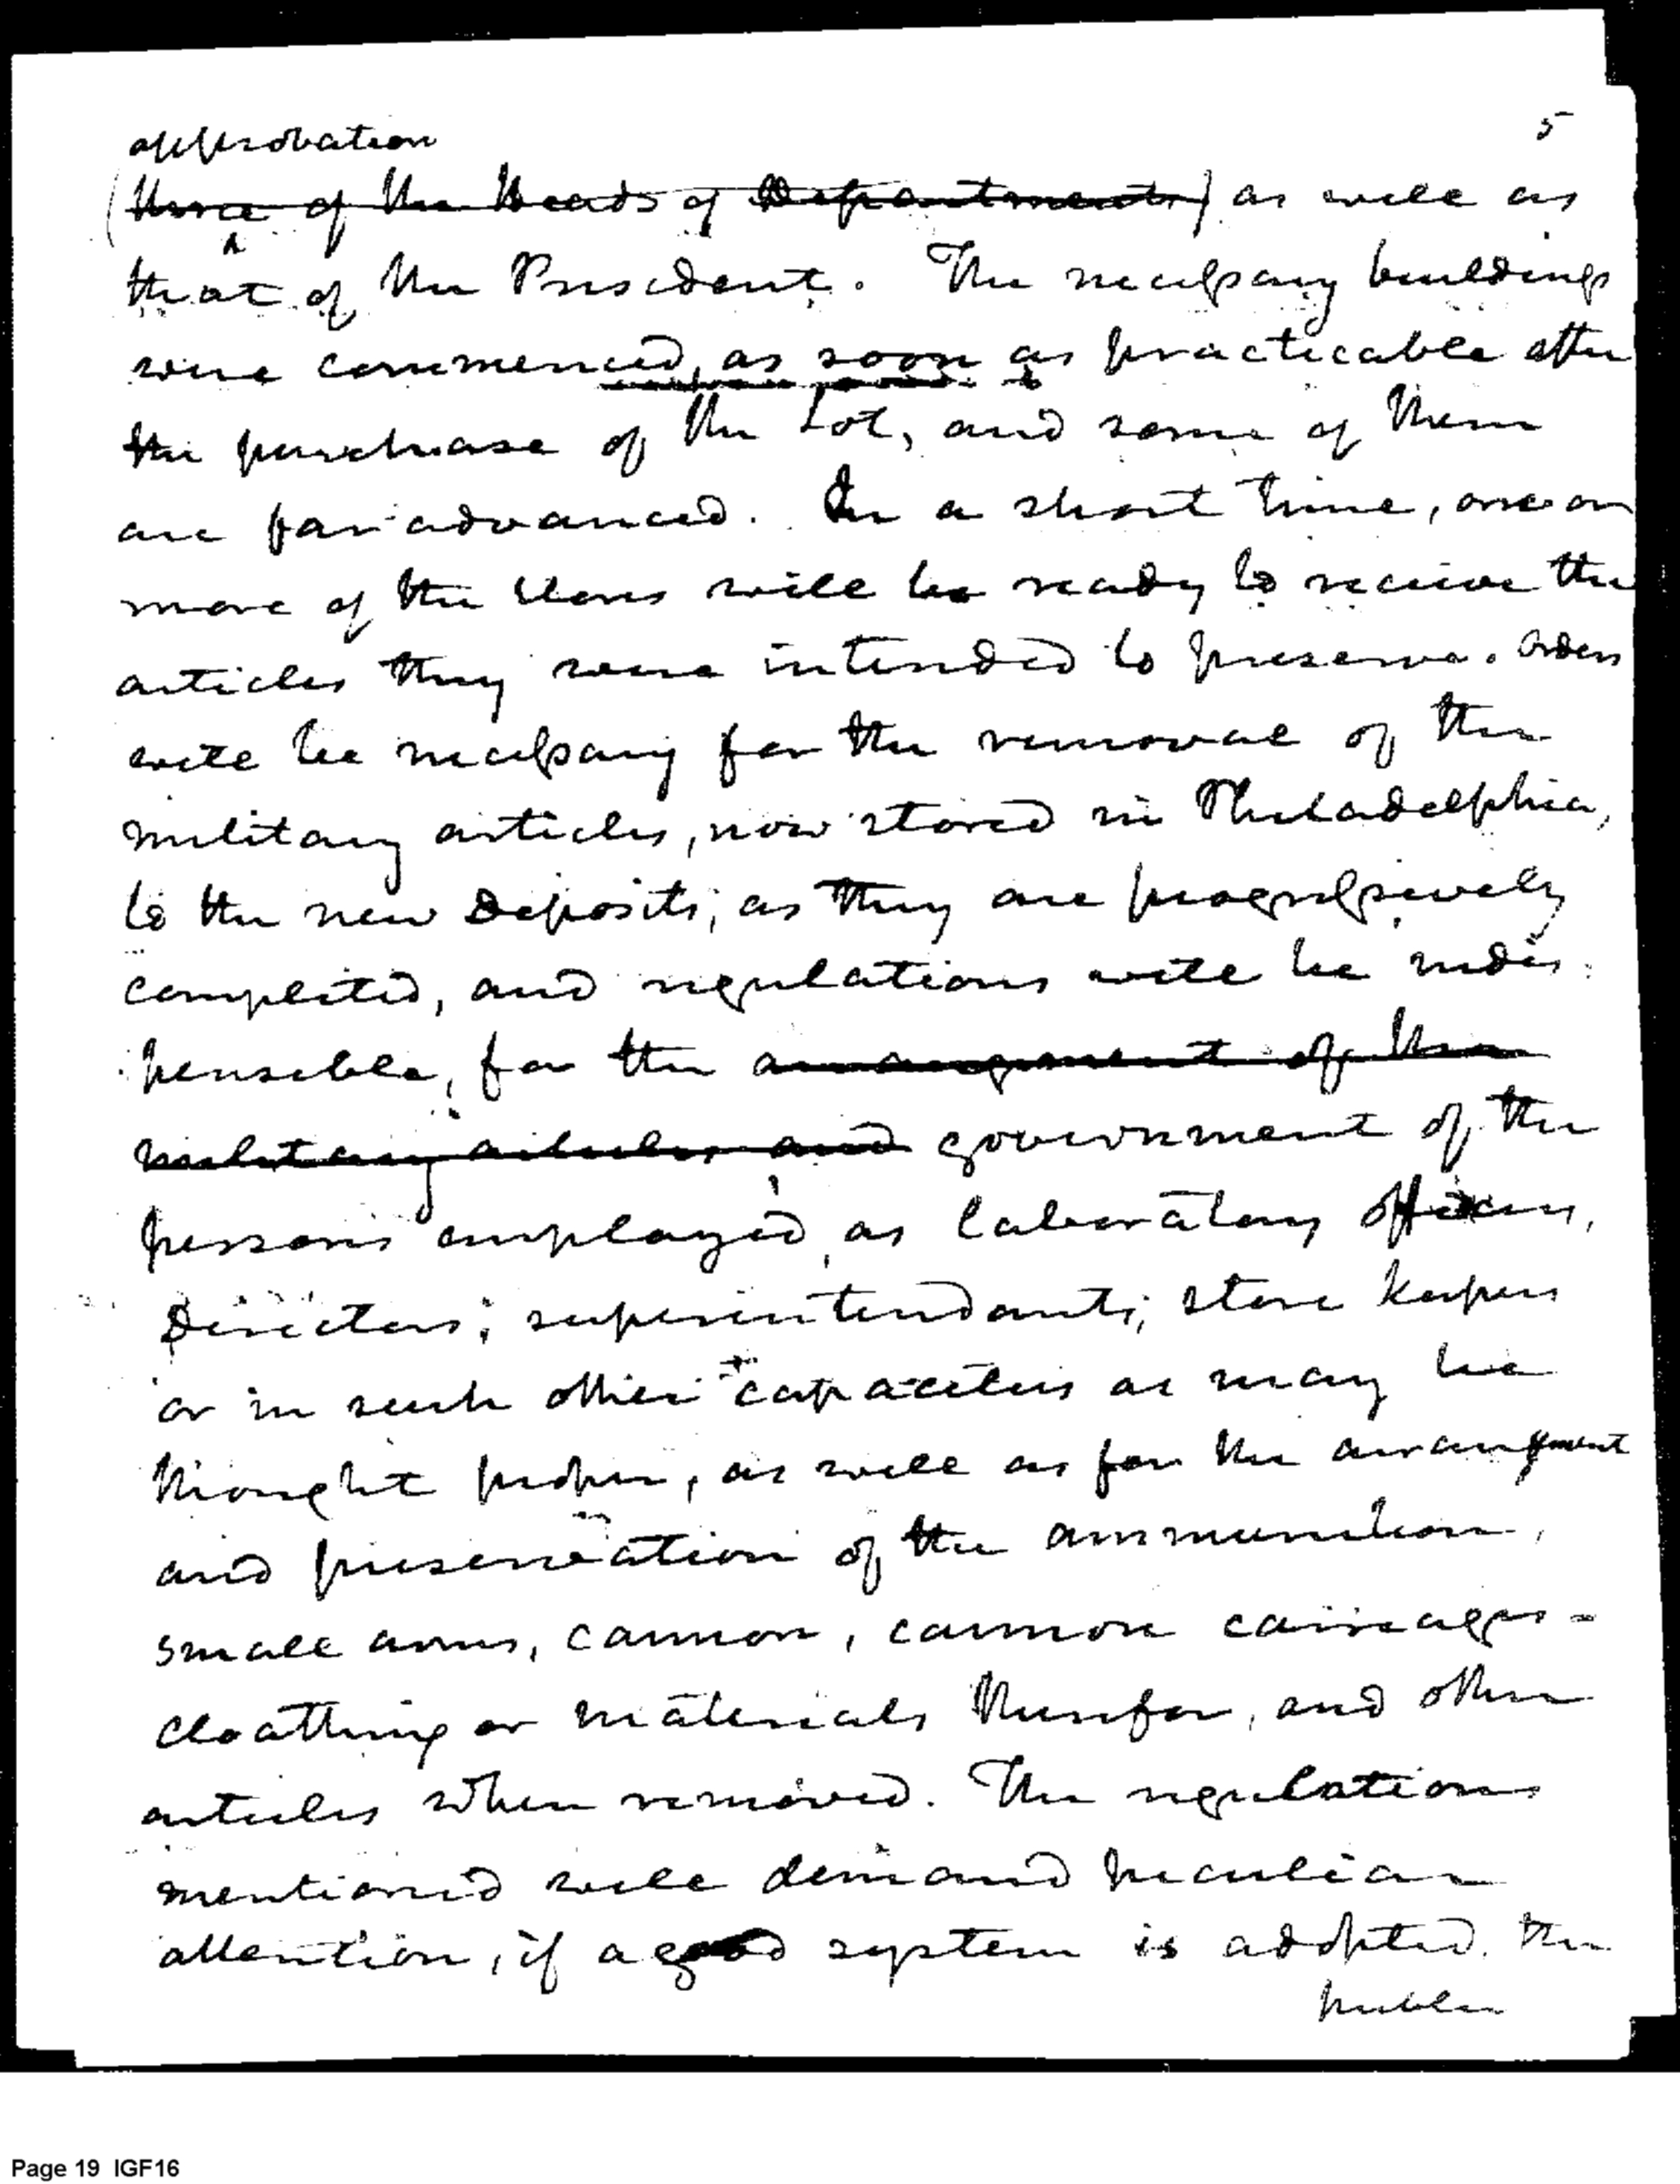 5
approbation
(those of the Heads of Departments) as well as
that of the President. The necessary buildings
were commenced, as soon as practicable after
the purchase of the Lot, and some of them
are far advanced. In a short time, one or
more of the stores will be ready to receive the
articles they were intended to preserve. Orders
will be necessary for the removal of the
military articles, now stored in Philadelphia,
to the new Deposits, as they are progressively
completed, and regulations will be indis:
:pensible, for the arrangement of the
military articles and government of the
persons employed, as laboratory officers,
Directors, superintendants, store keepers
or in such other capacities as may be
thought proper, as well as for the arrangement
and preservation of the ammunition,
small arms, cannon, cannon carriages -
cloathing or materials therefor, and other
articles when removed. The regulations
mentioned will demand peculiar
attention, if a good system is adopted. the
public
Page 19 IGF16